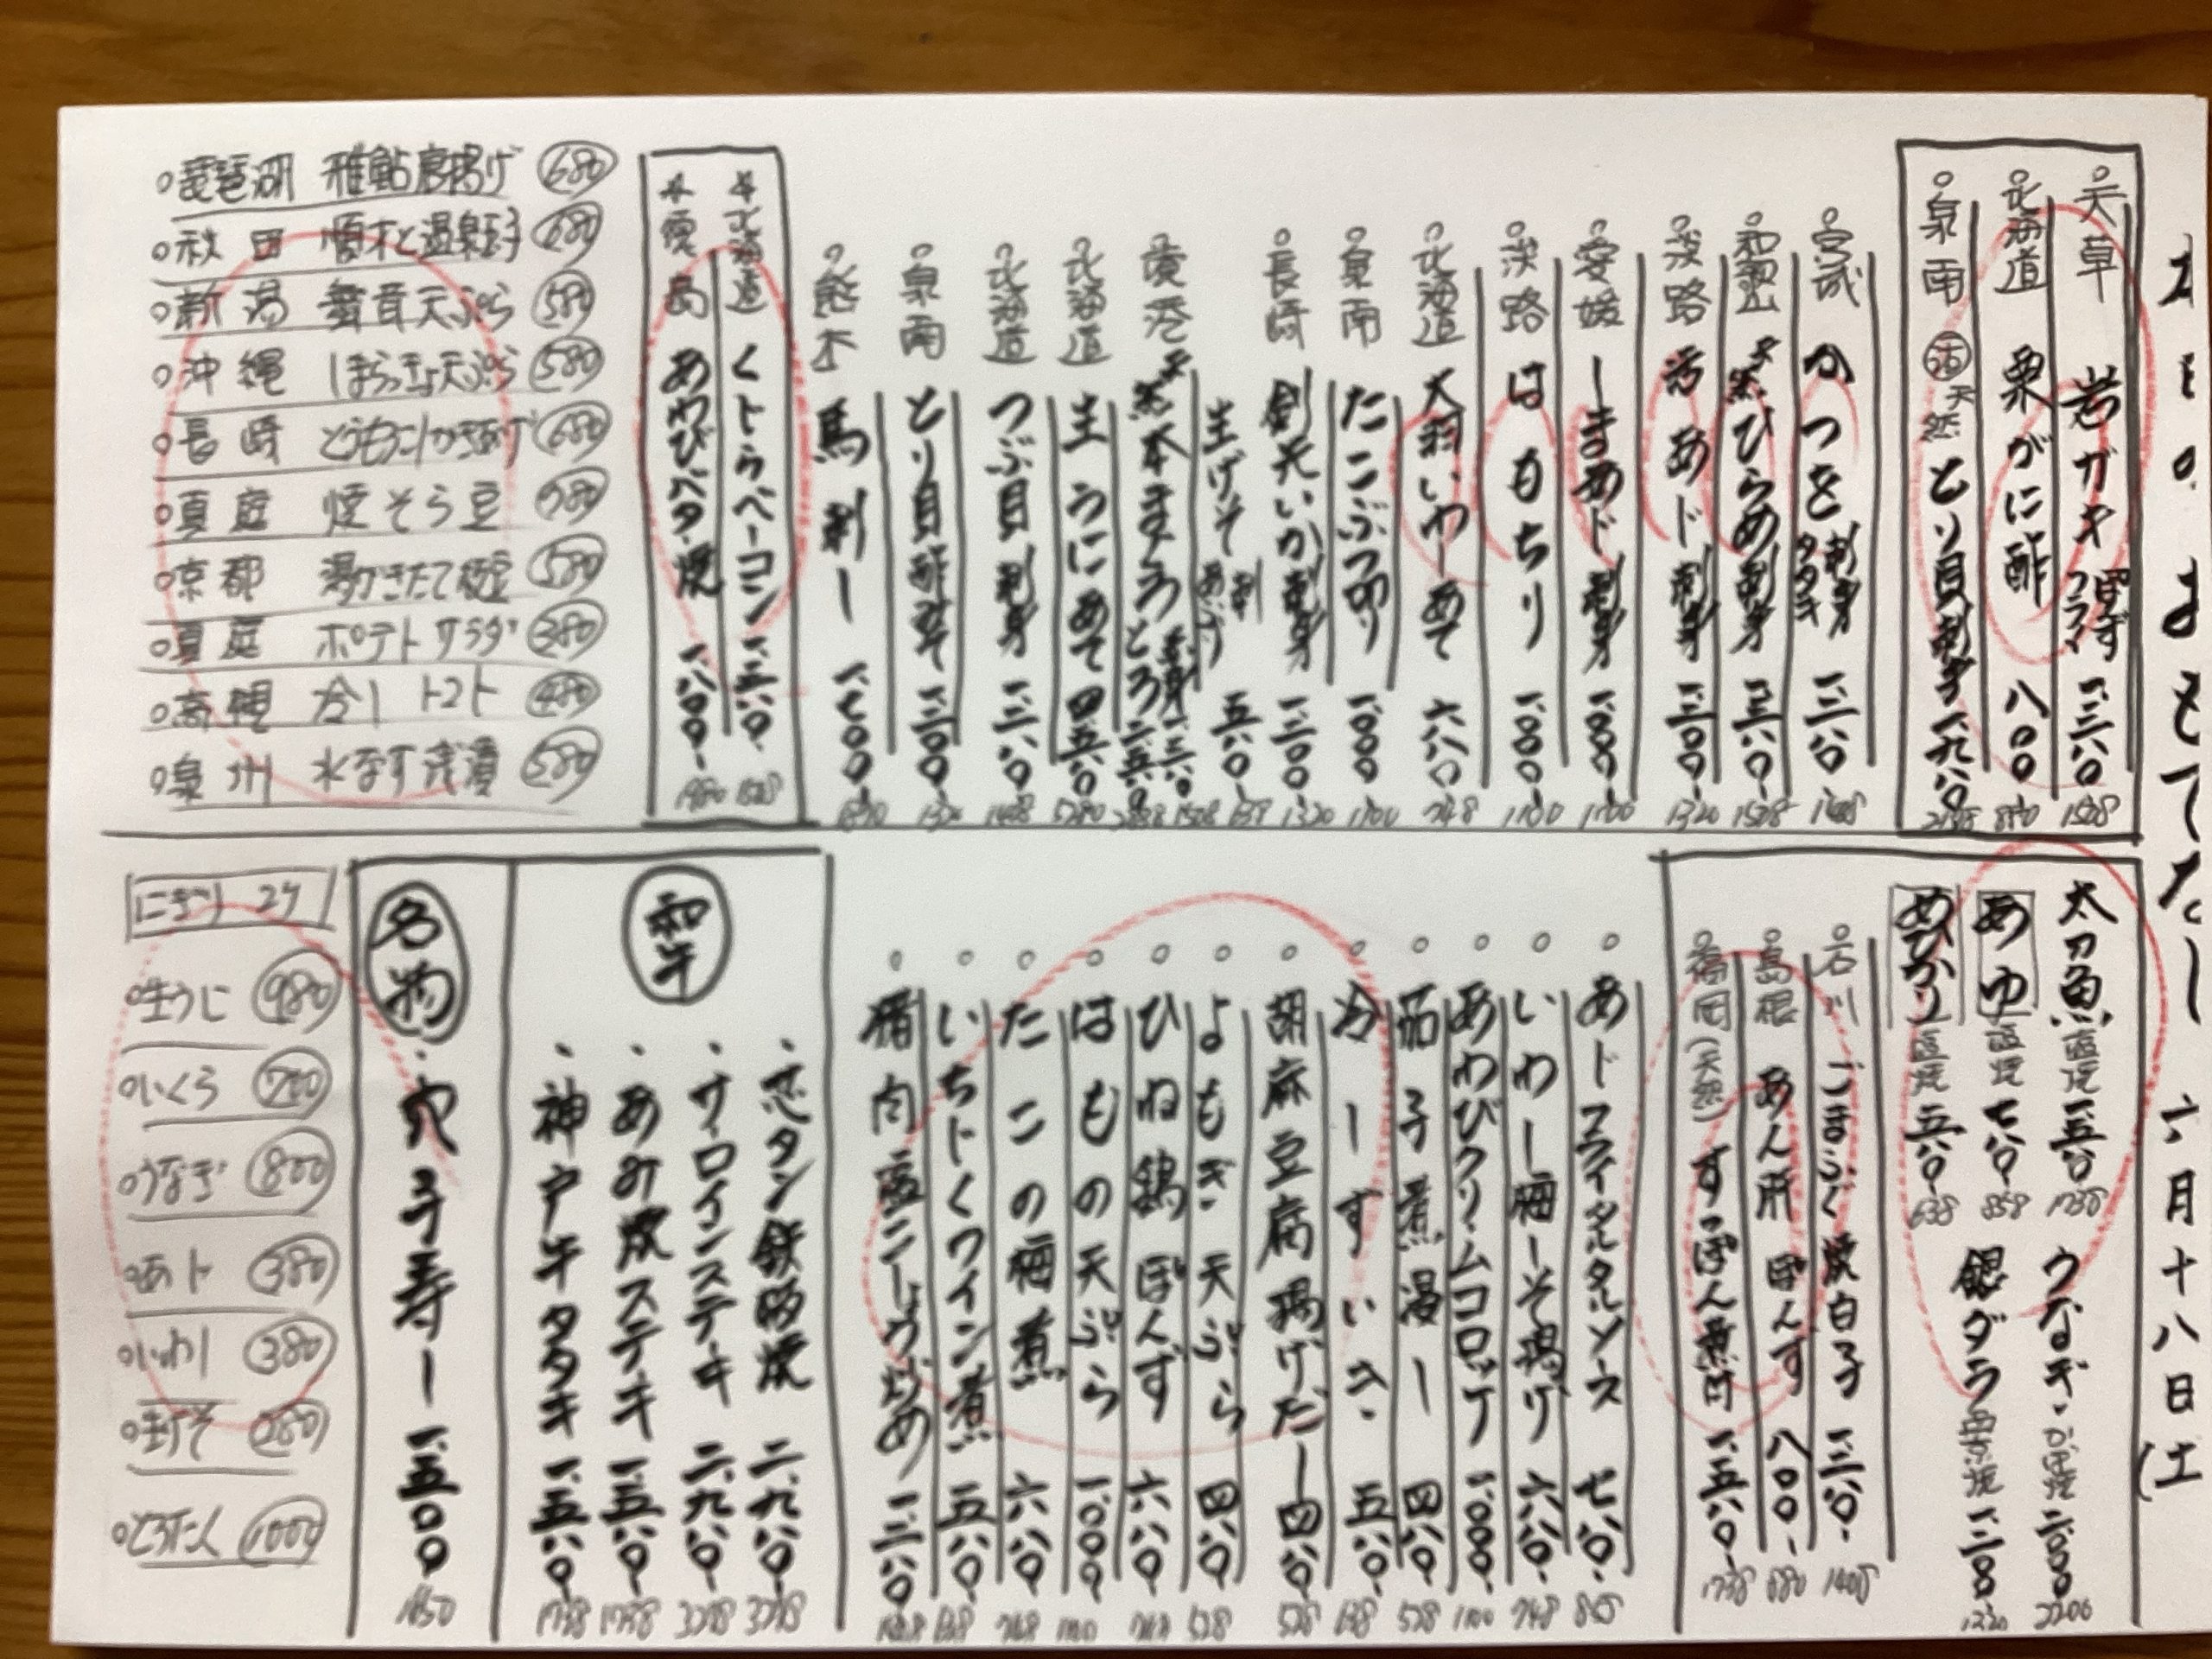 本日のおもてなし 六月十八日(土
天草 岩ガキ ぽんず フライ 一、三八〇 1518
北海道 栗がに酢 八〇〇 880
泉南 活 天然 とり貝刺身 一、九八〇
宮城 かつを 刺身 タタキ
和歌山 天然 ひらめ刺身 一、三八〇 1518
淡路 活あじ刺身 一、二〇〇 1320
愛媛 しまあじ刺身 一、〇〇〇 1100
淡路 はも ちり 一、〇〇〇 1100
北海道 大羽いわしあて 六八〇 748
泉南 たこぶつ切り 一、〇〇〇 1100
長崎 剣先いか刺身 一、二〇〇 1320
生げそ 刺 あぶり 五八〇 638
境港 天然 本まぐろ 赤身 一、三八〇 1518 とろ
北海道 生うにあて
北海道 つぶ貝刺身 一、二八〇 1408
泉南 とり貝酢みそ 一、二〇〇 1320
熊本 馬刺し 一、七〇〇
北海道 くじらベーコン 一、三八〇 1518
徳島 あわびバター焼 一、八〇〇 1980
琵琶湖 稚鮎唐揚げ 680
秋田 じゅん菜と温泉玉子 680
新潟 舞茸天ぷら 580
沖縄 島らっきょ天ぷら 580
長崎 とうもろこしかき揚げ 680
真庭 焼そら豆
京都 湯がきたて枝豆 580
真庭 ポテトサラダ 380
高槻 冷しトマト 480
泉州 水なす浅漬 580
太刀魚 塩焼 一、五八〇 1738
あゆ 塩焼 七八〇 858
めひかり 塩焼 五八〇 638
うなぎ かば焼 二、〇〇〇 2200
銀ダラ 西京焼
石川 ごまふぐ焼白子 一、二八〇 1408
島根 あん肝ぽんず 八〇〇 880
福岡(天然) すっぽん煮付 一、五八〇 1738
あじフライタルタルソース 七八〇 858
いわし梅しそ揚げ 六八〇 748
あわびクリームコロッケ 一、〇〇〇 1100
茄子煮浸し 四八〇 528
冷しすいき 五八〇 638
胡麻豆腐揚げだし 四八〇 528
よもぎ天ぷら 四八〇 528
ひね鶏ぽんず 六八〇 748
はもの天ぷら 一、〇〇〇 1100
たこの梅煮 六八〇 748
いちじくワイン煮 五八〇 638
猪肉塩こしょう炒め 一、二八〇 1408
和牛
芯タン鉄板焼 二、九八〇 3278
サーロインステーキ 二、九八〇 3278
あみ焼ステーキ 一、五八〇 1738
神戸牛タタキ 一、五八〇 1738
名物
穴子寿し 一、五〇〇 1650
にぎり 2ケ
生うに 980
いくら 700
うなぎ 800
あじ 380
いわし 380
生げそ 280
とろたく 1000